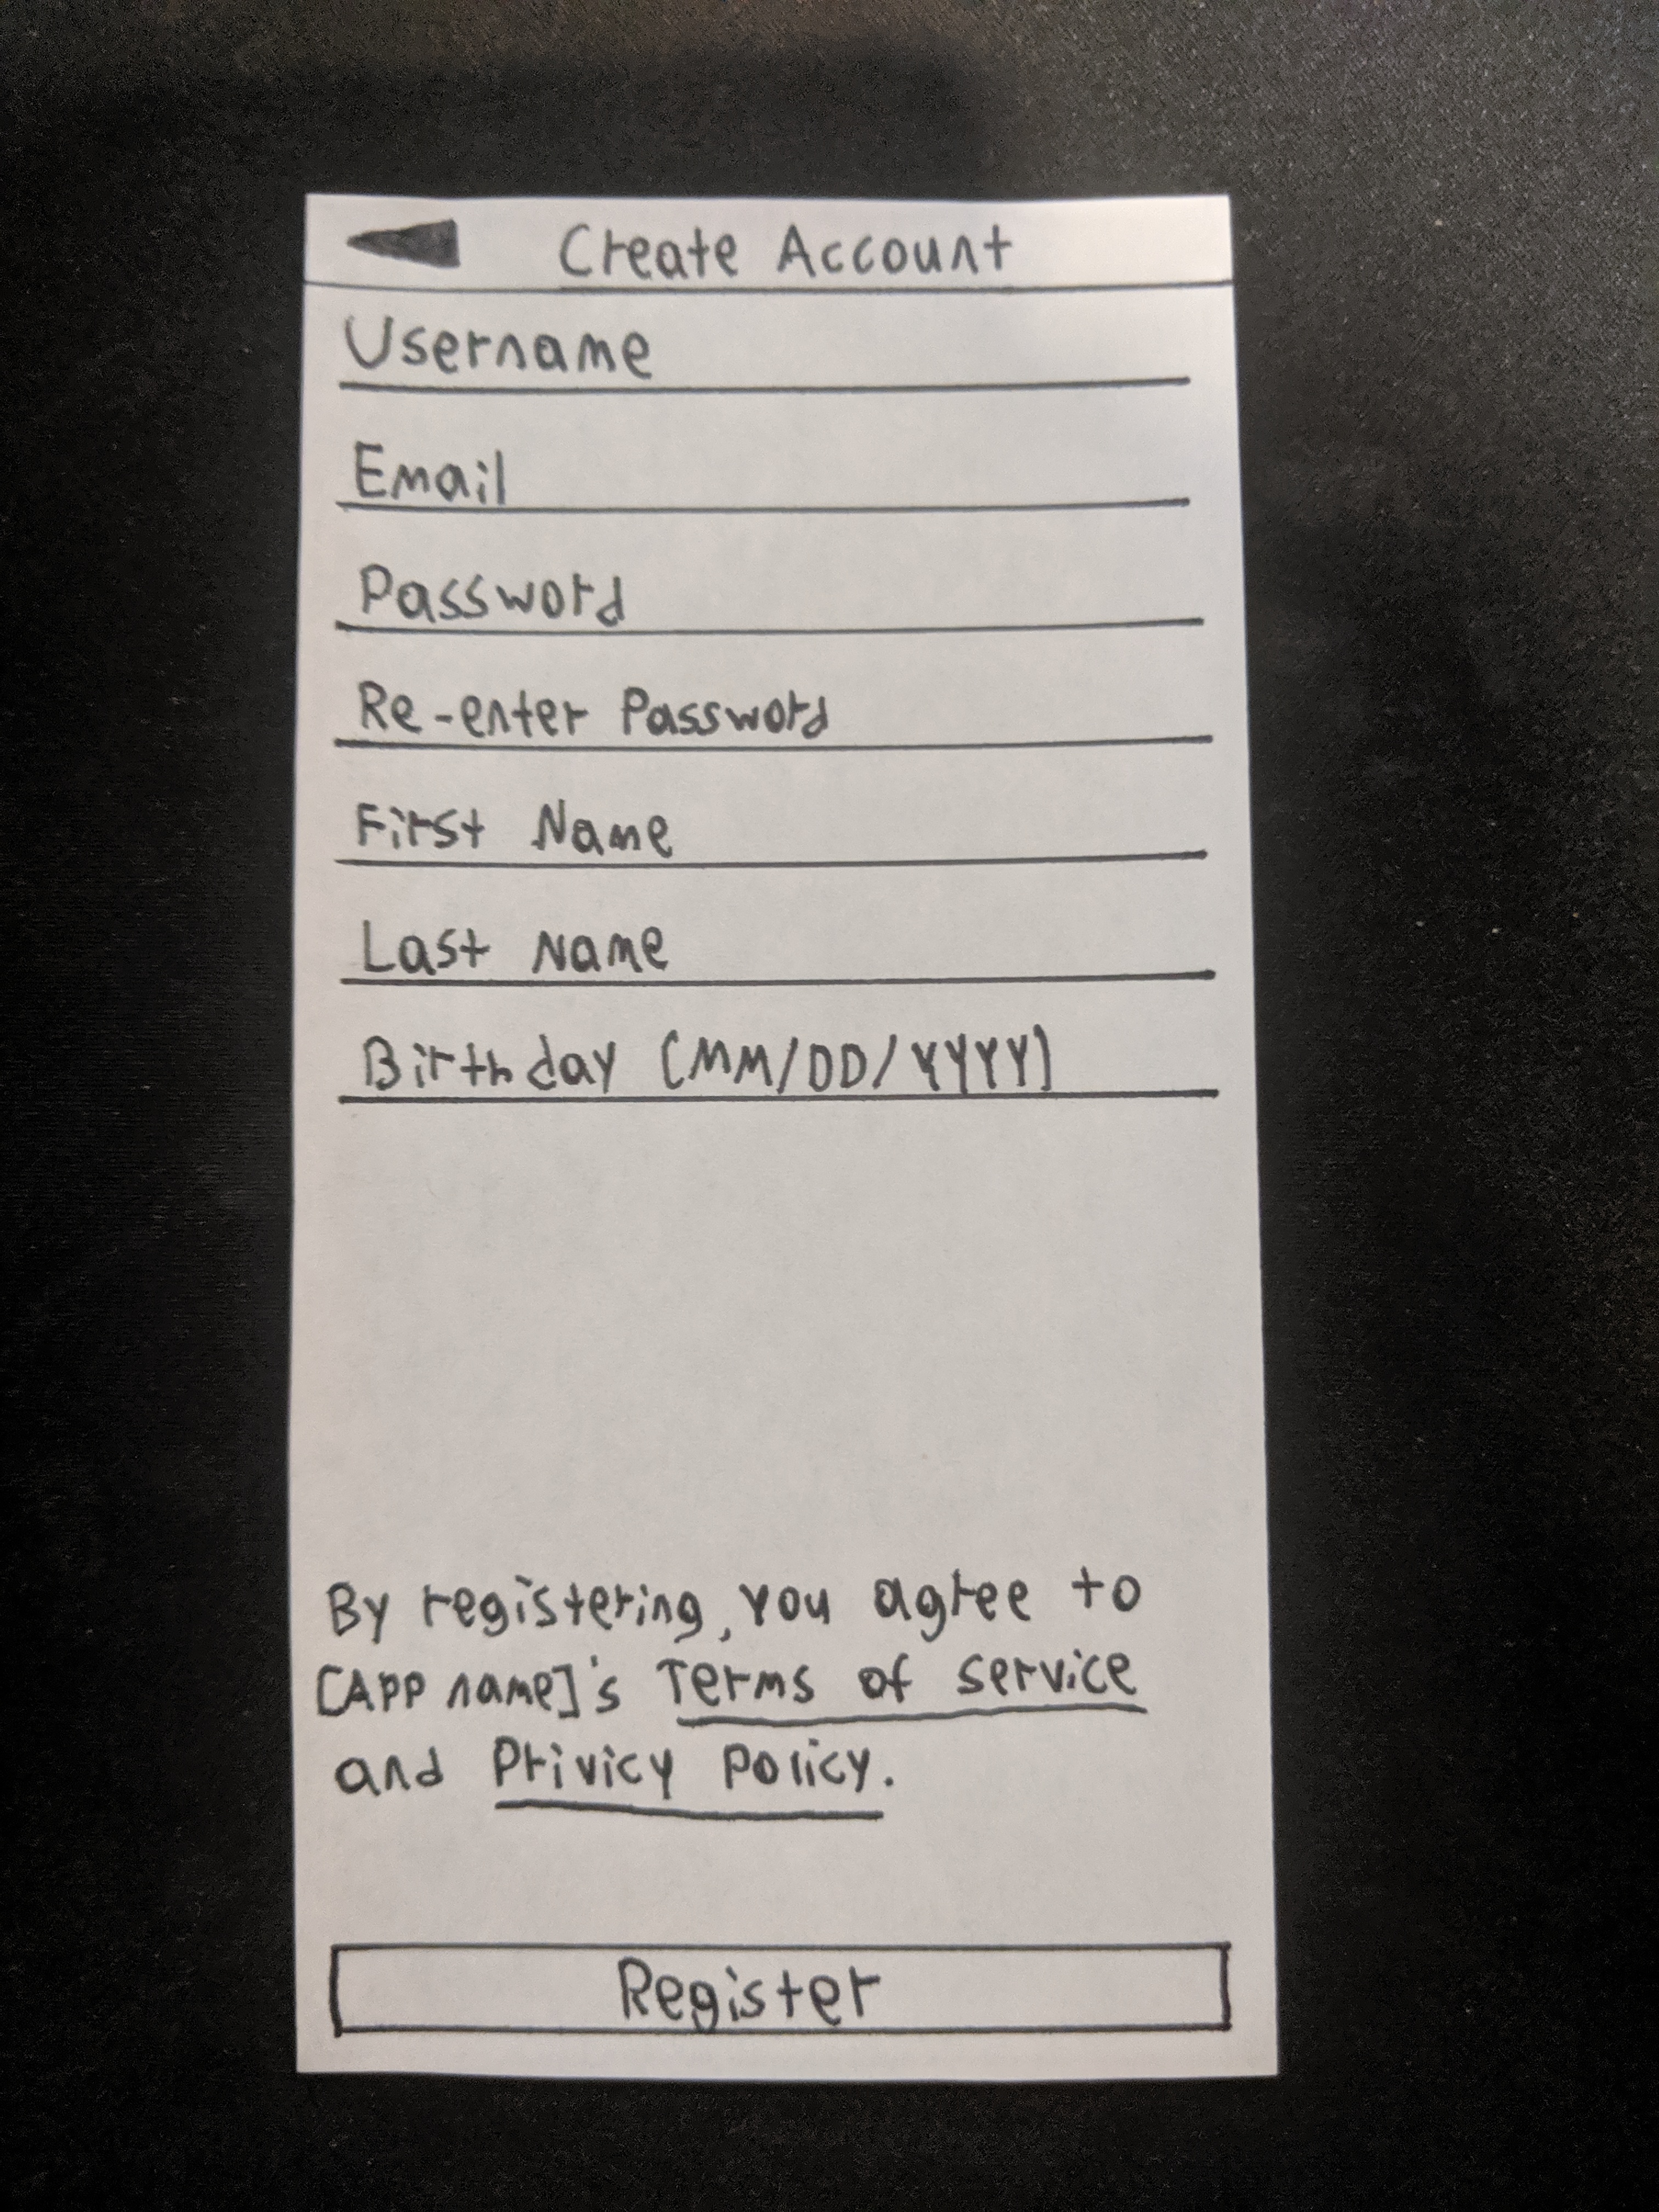 Create Account
Username
Email
Password
Re-enter Password
First Name
Last Name
Birthday (MM/DD/YYYY)
By registering, you agree to
[APP name]'s Terms of service
and Privicy Policy.
Register